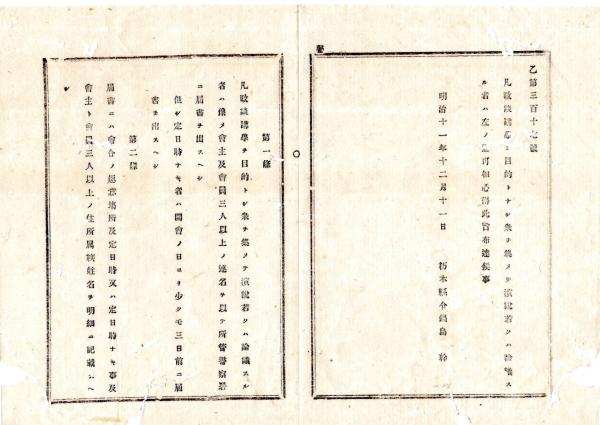 乙第三百十七號
凡政談講學ヲ目的トナシ衆ヲ集メテ演説若クハ論議ス
ル者ハ左ノ通可相心得此旨布達候事
明治十一年十二月十一日
栃木縣令鍋島幹
第一條
凡政談講學ヲ目的トシ衆ヲ集メテ演説若クハ論議スル
者ハ豫メ會主及會員三人以上ノ連名ヲ以テ所管警察署
ニ屆書ヲ出スヘシ
但シ定日時ナキ者ハ開會ノ日ヨリ少クモ三日前ニ屆
書ヲ出スヘシ
第二條
屆書ニハ會合ノ趣意塲所及定日時又ハ定日時ナキ事及
會主ト會員三人以上ノ住所屬族姓名ヲ明細ニ記載スヘ
シ